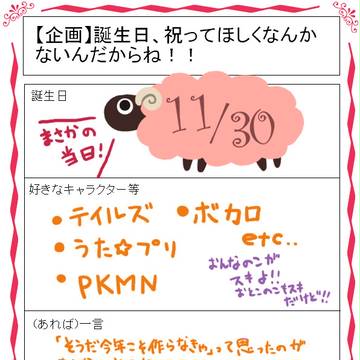 【企画】誕生日、祝ってほしくなんか
ないんだからね！！
誕生日
11/30
まさかの
当日!
好きなキャラクター等
•テイルズ •ボカロ
•うた☆プリ etc..
•PKMN
おんなのこが
スキよ!!
おとこのこもスキ
だけど!!
(あれば)一言
「そうだ今年こそ作らなきゃ」って思ったのが